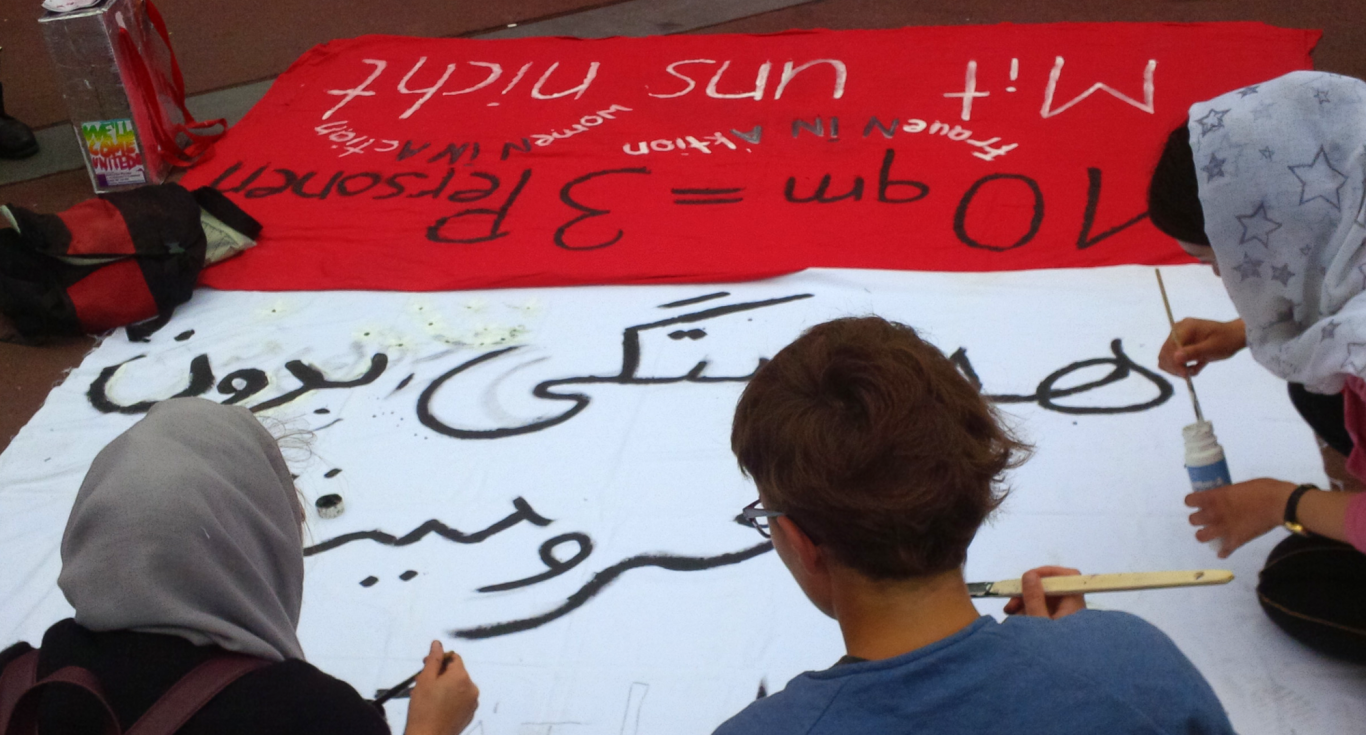 10 qm = 3 Personen
Frauen IN Aktion women IN Action
Mit uns nicht
WE'LL
COME
UNITED
همبستگی بدون